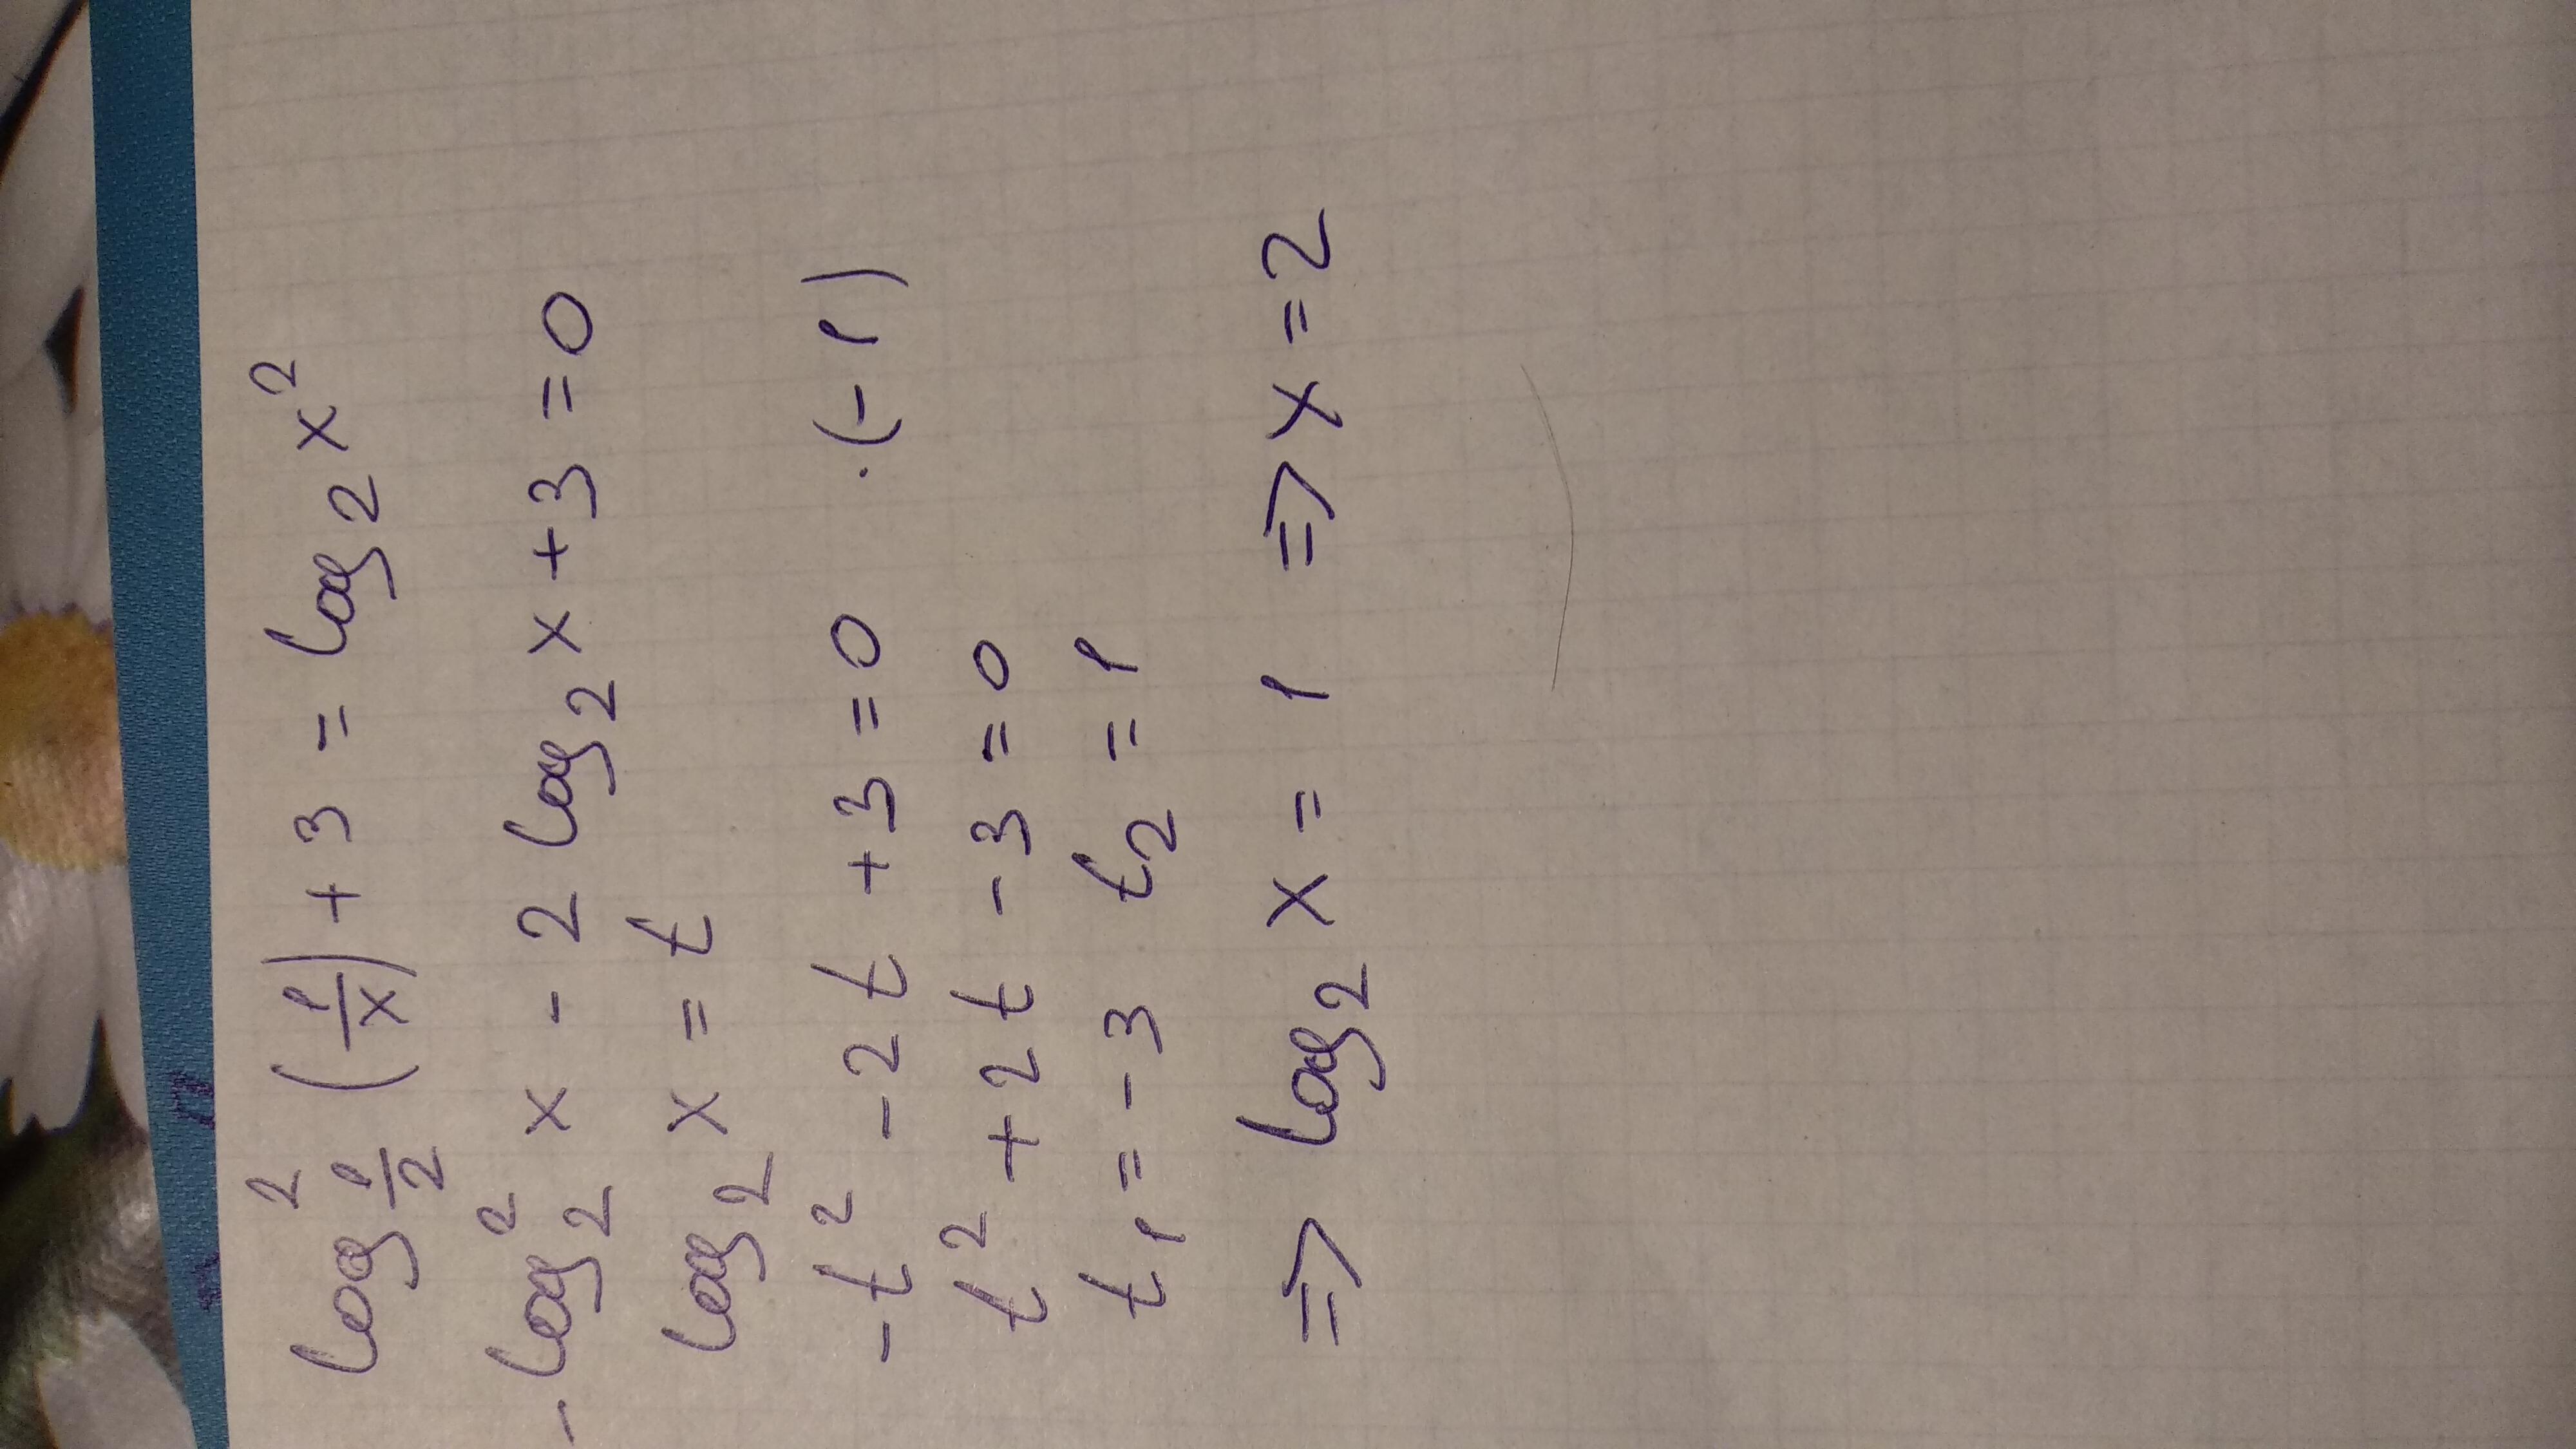 log²_{1/2} (1/x) + 3 = log₂ x²
- log₂² x - 2 log₂ x + 3 = 0
log₂ x = t
-t² - 2t + 3 = 0 ·(-1)
t² + 2t - 3 = 0
t₁ = -3 t₂ = 1
=> log₂ x = 1 => x = 2